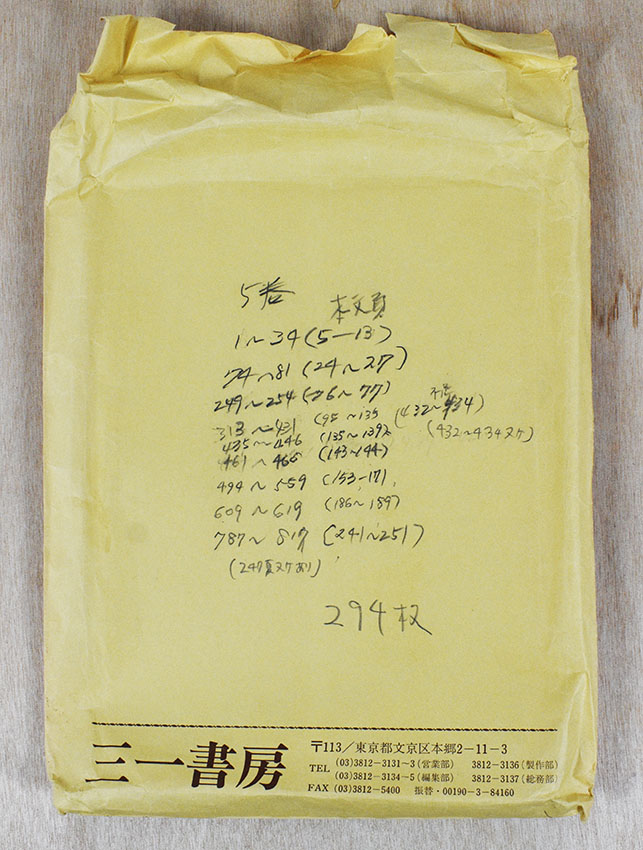 5巻 本文頁
1〜34(5—13)
74〜81(24〜27)
249〜254(76〜77)
313〜431(95〜135 (432〜434)
435〜446(135〜139) (432〜434ヌケ)
461〜465(143〜144)
494〜559(153—171)
609〜619(186〜189)
787〜817(241〜251)
(247頁ヌケあり)
294枚
三一書房
〒113／東京都文京区本郷2−11−3
TEL (03)3812−3131〜3(営業部) 3812−3136(製作部)
(03)3812−3134〜5(編集部) 3812−3137(総務部)
FAX (03)3812−5400 振替・00190−3−84160